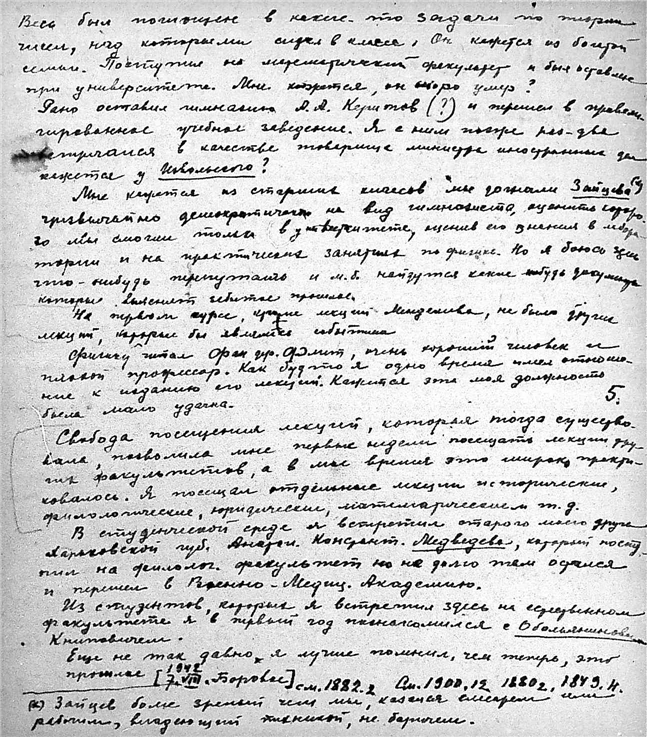 Весь был поглощен в какие-то задачи по теории
чисел, над которыми сидел в классе. Он кажется из богатой
семьи. Поступил на математический факультет и был оставлен
при университете. Мне кажется, он скоро умер?
Рано оставил гимназию А. А. Керитов (?) и перешел в привели-
гированное учебное заведение. Я с ним позже раз-два
встречался в качестве товарища министра иностранных дел
кажется у Извольского?
Мне кажется из старших классов мы догнали Зайцева (x)
чрезвычайно демократическ на вид гимназиста, оценить которо-
го мы смогли только в университете, оценив его знания в лабора-
тории и на практических занятиях по физике. Но я боюсь здесь
что-нибудь перепутать и м.б. найдутся какие нибудь документы
которые выяснят забытое прошлое.
На первом курсе, кроме лекций Менделеева, не было других
лекций, которые бы являлись событием
Физику читал Фан дер Флит, очень хороший человек и
плохой профессор. Как будто я одно время имел отноше-
ние к изданию его лекций. Кажется эта моя должность
была мало удачна.
5.
Свобода посещения лекций, которая тогда существо-
вала, позволила мне первые недели посещать лекции дру-
гих факультетов, а в мое время это широко практи-
ковалось. Я посещал отдельные лекции исторические,
филологические, юридические, математические и т.д.
В студенческой среде я встретил старого моего друга
Харьковской губ. Анатол. Констант. Медведева, который посту-
пил на филолог. факультет но не долго там остался
и перешел в Военно-Медиц. Академию.
Из студентов, которых я встретил здесь на естественном
факультете я в первый год познакомился с Обольяниновым
Книповичем.
Еще не так давно, я лучше помнил, чем теперь, это
прошлое [1942 7.VIII. Боровое] см. 1882.2 См. 1900,12 1880 2, 1849.4.
(x) Зайцев более зрелый чем мы, казался слесарем или
рабочим, владеющий техникой, не баричем.